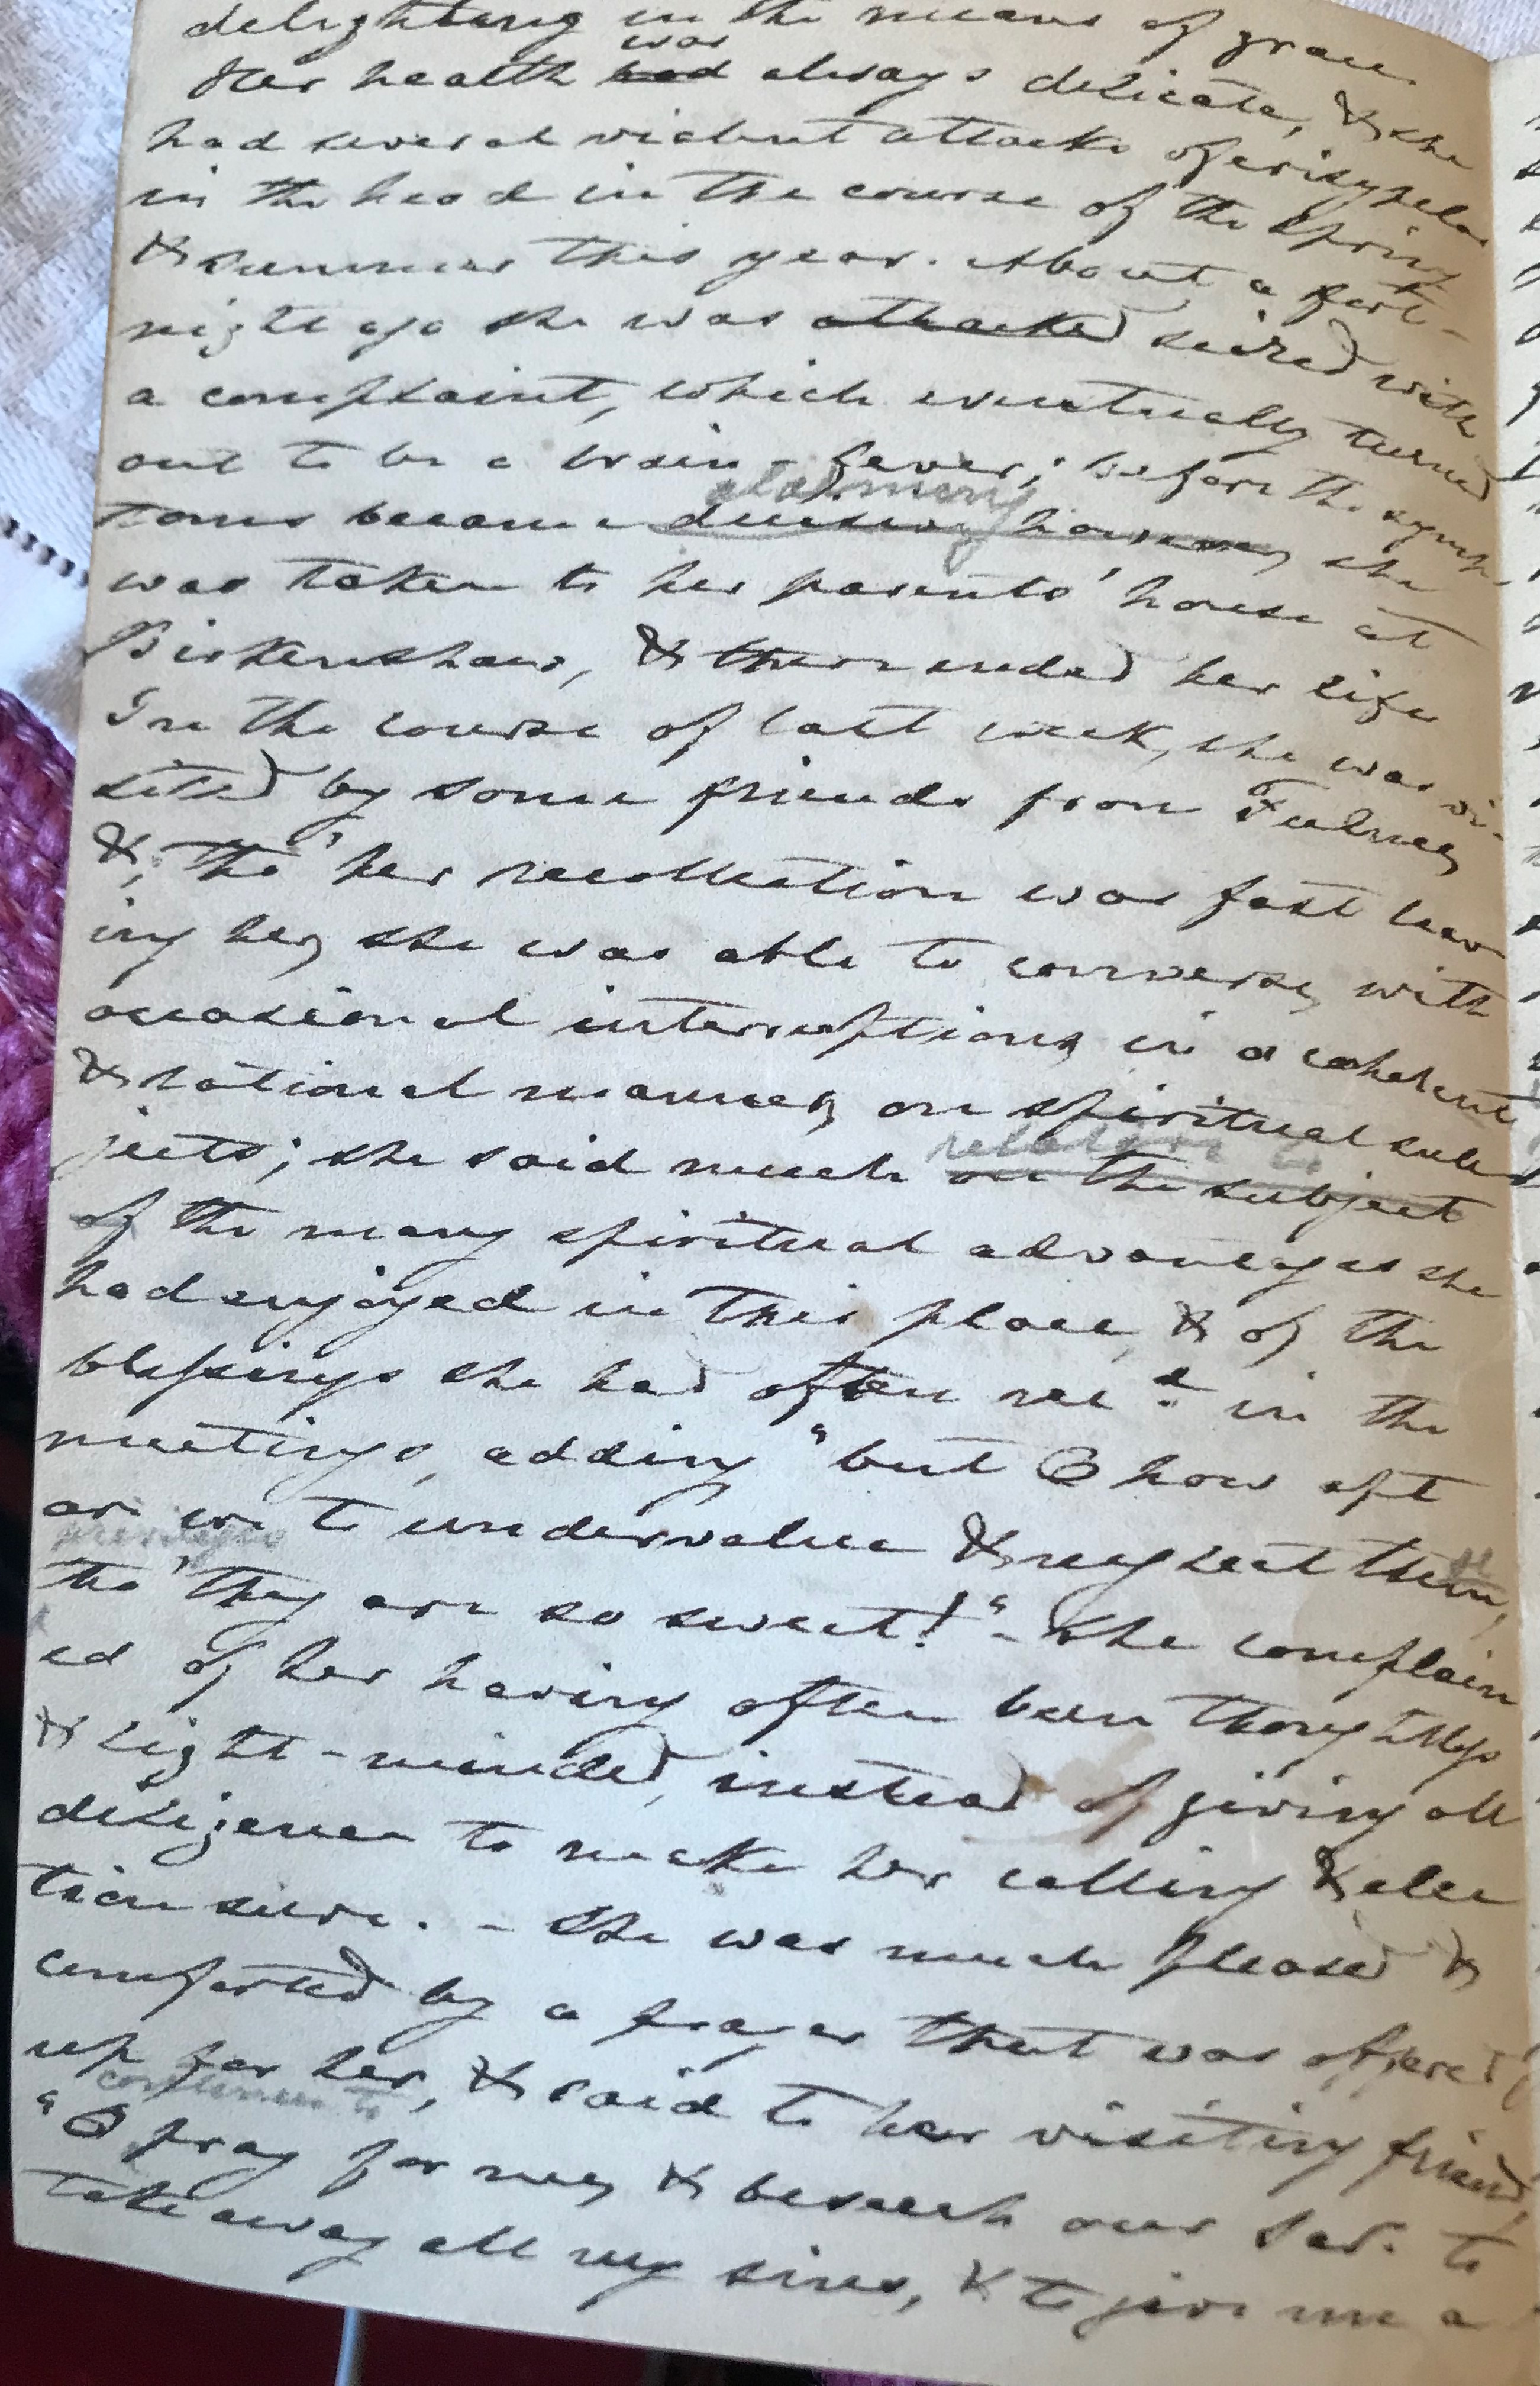 delighting in the means of grace
was
Her health had always delicate, & she
had several violent attacks of erisypelas
in the head in the course of the Spring
& summer this year. About a fort-
night ago she was attacked seized with
a complaint, which eventually turned
out to be a brain-fever; before the symp
alarming
toms became decisive, however, she
was taken to her parents' house at
Birkenshaw, & there ended her life
In the course of last week, she was vi-
sited by some friends from Fulneck,
&, tho' her recollection was fast leav
ing her, she was able to converse, with
occasional interruptions, in a coherent
& rational manner, on spiritual sub
relative to
jects; she said much on the subject
of the many spiritual advantages she
had enjoyed in this place, & of the
blessings she had often recd. in the
meetings, adding "but O how apt
are we to undervalue & neglect them,
privileges
tho' they are so sweet!" - She complain
ed of her having often been thoughtless
& light-minded, instead of giving all
diligence to make her calling & elec
tion sure. - She was much pleased &
comforted by a prayer that was offered
up for her, & said to her visiting friend,
continue to
"O pray for me, & beseech our Sav. to
take away all my sins, & to give me a